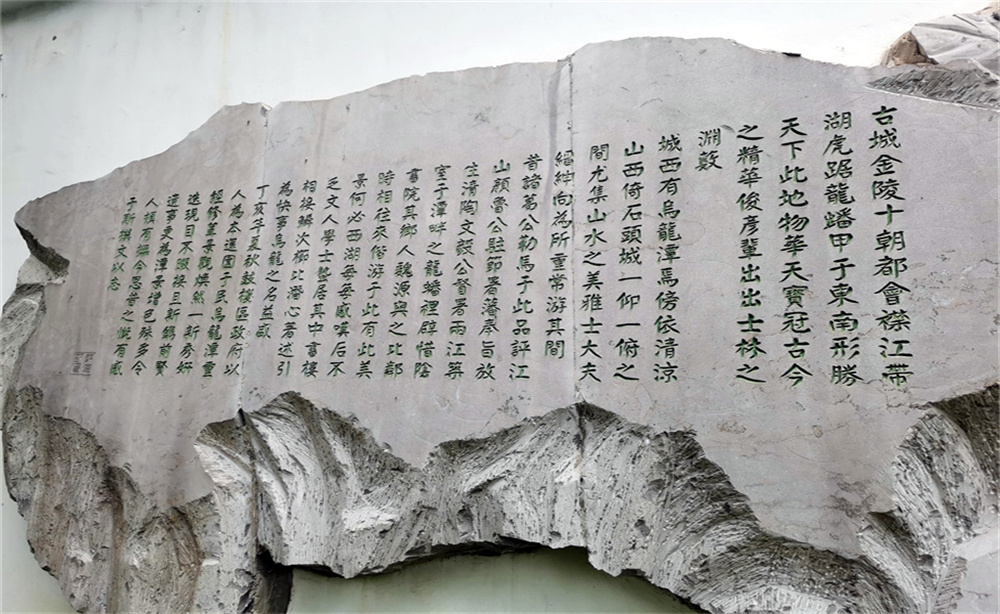 古城金陵十朝都會襟江帶
湖虎踞龍蟠甲于東南形勝
天下此地物華天寶冠古今
之精華俊彥輩出出士林之
淵藪
城西有烏龍潭焉傍依清涼
山西倚石頭城一仰一俯之
間尤集山水之美雅士大夫
縉紳尚為所重常游其間
昔諸葛公勒馬于此品評江
山顏魯公駐節署藩奉旨放
生清陶文毅公督署兩江築
室于潭畔之龍蟠裡辟惜陰
書院其鄉人魏源與之比鄰
時相往來俗游于此有此美
景何必西湖每每感嘆后不
乏文人學士蟄居其中書樓
相接鱗次櫛比潛心著述引
為快事烏龍之名益盛
丁亥年夏秋鼓樓區政府以
人為本還園于民烏龍潭重
經修葺景觀煥然一新秀妍
迭現目不暇接且新前賢
遺事更為潭景增色殊多令
人頓有撫今思昔之慨有感
于斯撰文以志